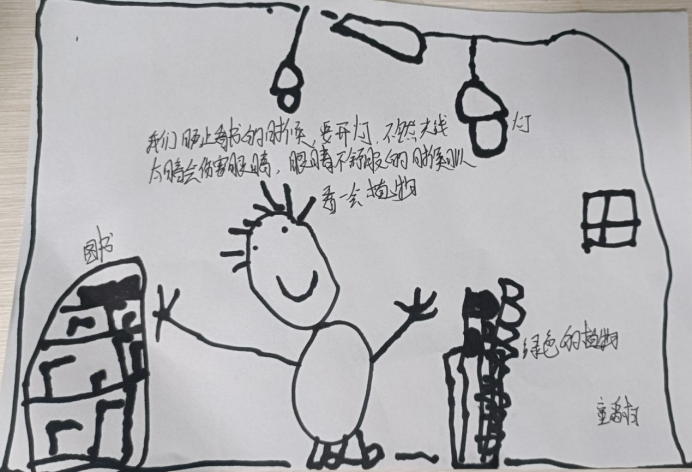 我们晚上看书的时候,要开灯,不然光线
太暗会伤害眼睛,眼睛不舒服的时候可以
看一会植物
灯
图书
绿色的植物